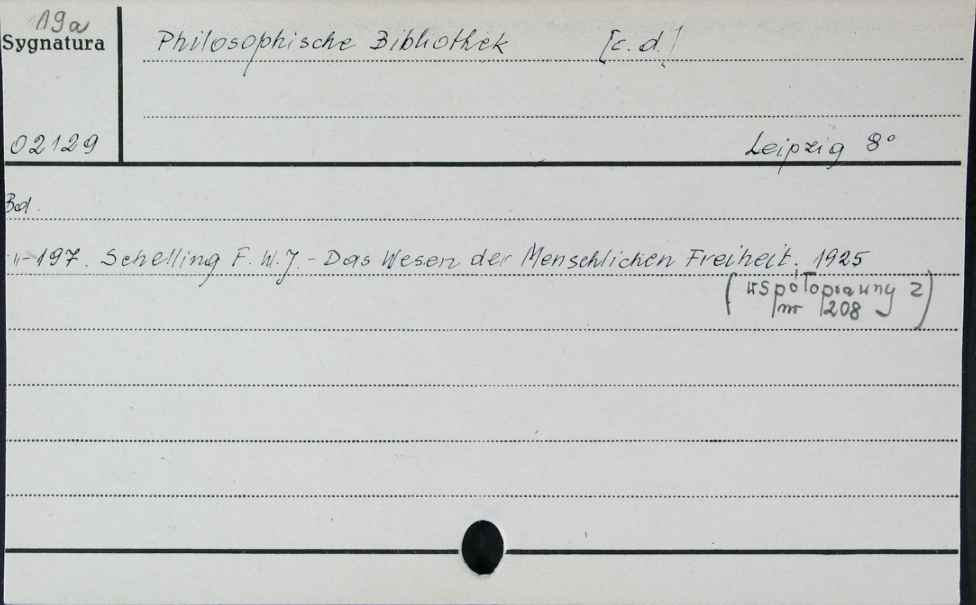 19a
Sygnatura
Philosophische Bibliothek [c.d.]
02129
Leipzig 8°
Bd.
-"-197. Schelling F.W.J. - Das Wesen der Menschlichen Freiheit. 1925
(współoprawny z
nr 208)